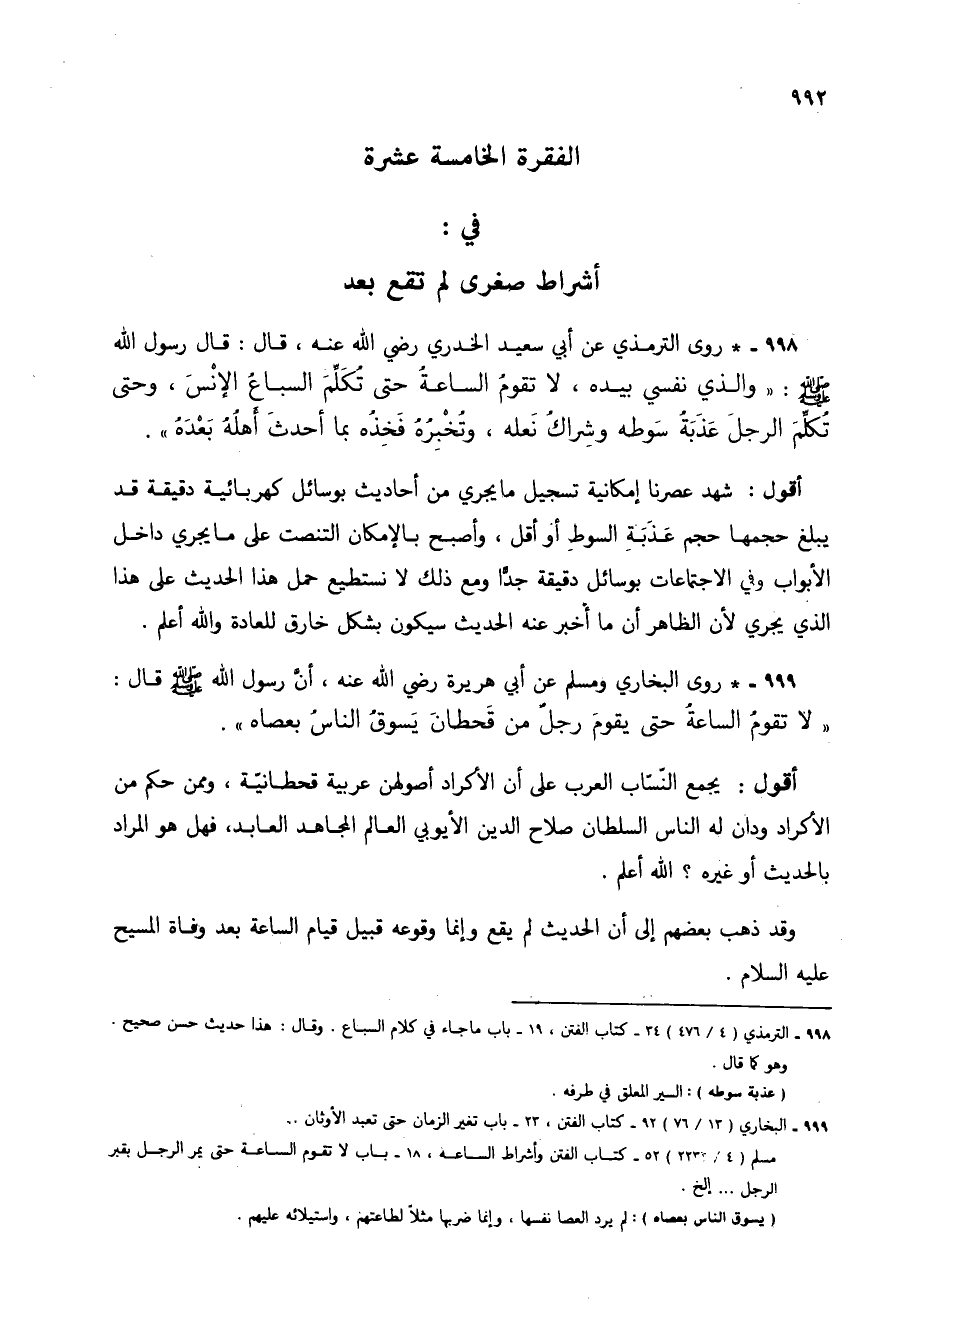 ٩٩٢
الفقرة الخامسة عشرة
في :
أشراط صغرى لم تقع بعد
٩٩٨ - * روى الترمذي عن أبي سعيد الخدري رضي الله عنه ، قال : قال رسول الله
ﷺ : « والذي نفسي بيده ، لا تقومُ الساعةُ حتى تُكَلِّمَ السباعُ الإنْسَ ، وحتى
تُكلِّمَ الرجلَ عَذَبَةُ سَوطه وشِراكُ نَعله ، وتُخْبِرُهُ فَخِذُه بما أحدثَ أَهلُهُ بَعْدَهُ » .
أقول : شهد عصرنا إمكانية تسجيل مايجري من أحاديث بوسائل كهربائية دقيقة قد
يبلغ حجمها حجم عَذَبَةِ السوطِ أو أقل ، وأصبح بالإمكان التنصت على مايجري داخل
الأبواب وفي الاجتماعات بوسائل دقيقة جدًّا ومع ذلك لا نستطيع حمل هذا الحديث على هذا
الذي يجري لأن الظاهر أن ما أُخبر عنه الحديث سيكون بشكل خارق للعادة والله أعلم .
٩٩٩ - * روى البخاري ومسلم عن أبي هريرة رضي الله عنه ، أنَّ رسول الله ﷺ قال :
« لا تقومُ الساعةُ حتى يقومَ رجلٌ من قَحطانَ يَسوقُ الناسُ بعصاه » .
أقول : يجمع النّسّاب العرب على أن الأكراد أصولهن عربية قحطانيّة ، وممن حكم من
الأكراد ودان له الناس السلطان صلاح الدين الأيوبي العالم المجاهد العابد، فهل هو المراد
بالحديث أو غيره ؟ الله أعلم .
وقد ذهب بعضهم إلى أن الحديث لم يقع وإنما وقوعه قبيل قيام الساعة بعد وفاة المسيح
عليه السلام .
٩٩٨ - الترمذي ( ٤ / ٤٧٦ ) ٣٤ - كتاب الفتن ، ١٩ - باب ماجاء في كلام السباع . وقال : هذا حديث حسن صحيح .
وهو كما قال .
( عذبة سوطه ) : السير المعلق في طرفه .
٩٩٩ - البخاري ( ١٣ / ٧٦ ) ٩٢ - كتاب الفتن ، ٢٣ - باب تغير الزمان حتى تعبد الأوثان ..
مسلم ( ٤ / ) ٥٢ - كتاب الفتن وأشراط الساعة ، ١٨ - باب لا تقوم الساعة حتى يمر الرجل بقبر
الرجل ... إلخ .
( يسوق الناس بعصاه ) : لم يرد العصا نفسها ، وإنما ضربها مثلاً لطاعتهم ، واستيلائه عليهم .